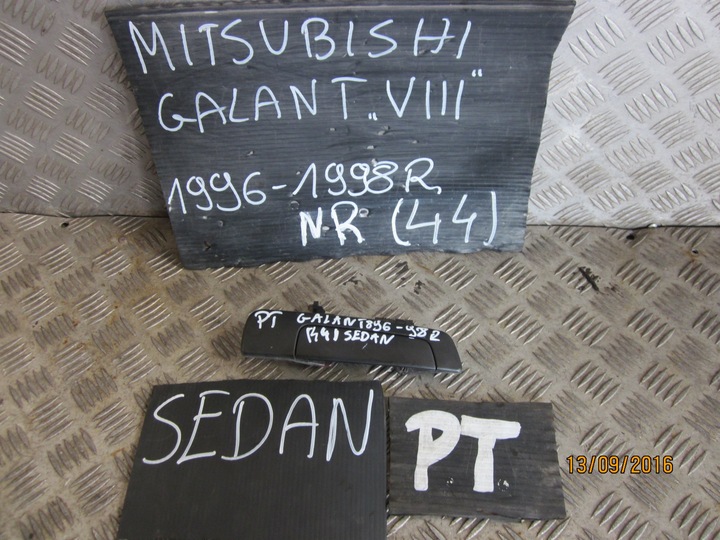 MITSUBISHI
GALANT „VIII"
1996-1998R,
NR (44)
PT GALANT 8 96-98R
SEDAN
SEDAN
P.T.
13/09/2016